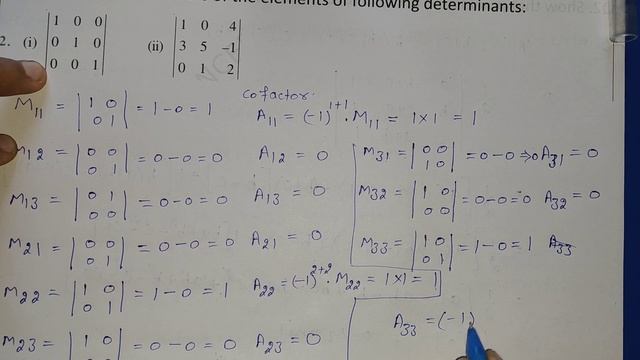 of the elements of following determinants:
2. (i) |1 0 0; 0 1 0; 0 0 1| (ii) |1 0 4; 3 5 -1; 0 1 2|
cofactor.
M11 = |1 0; 0 1| = 1-0 = 1 A11 = (-1)^1+1 . M11 = 1×1 = 1
M12 = |0 0; 0 1| = 0-0 = 0 A12 = 0
M13 = |0 1; 0 0| = 0-0 = 0 A13 = 0
M21 = |0 0; 0 1| = 0-0 = 0 A21 = 0
M22 = |1 0; 0 1| = 1-0 = 1 A22 = (-1)^2+2 . M22 = 1×1 = 1
M23 = |1 0; 0 0| = 0-0 = 0 A23 = 0
M31 = |0 0; 1 0| = 0-0 ⇒0 A31 = 0
M32 = |1 0; 0 0| = 0-0 = 0 A32 = 0
M33 = |1 0; 0 1| = 1-0 = 1 A33
A33 = (-1)